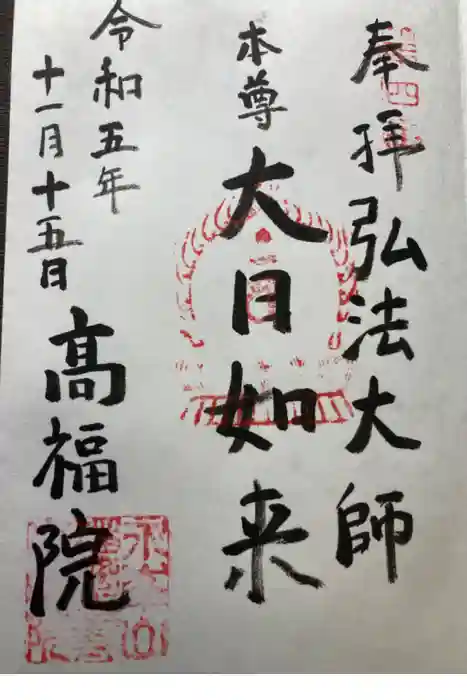 奉拝 弘法大師
本尊 大日如来
令和五年
十一月十五日
髙福院